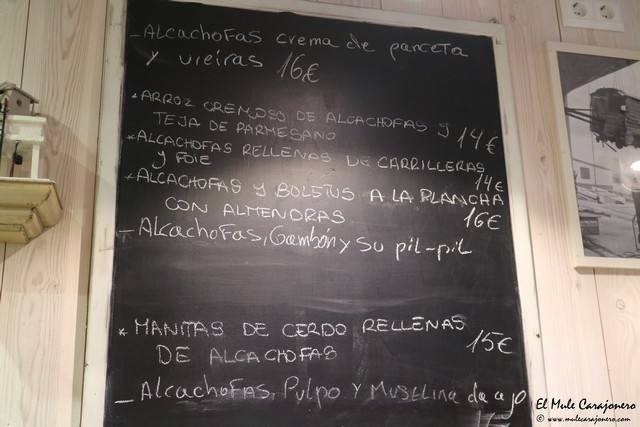 - Alcachofas crema de panceta
y vieiras 16€
* ARROZ CREMOSO DE ALCACHOFAS y
TEJA DE PARMESANO 14€
* ALCACHOFAS RELLENAS DE CARRILLERAS
y FOIE 14€
* ALCACHOFAS Y BOLETUS A LA PLANCHA
CON ALMENDRAS 16€
- Alcachofas, Gambón y Su pil-pil
* MANITAS DE CERDO RELLENAS
DE ALCACHOFAS 15€
- Alcachofas, Pulpo y Muselina de ajo
El Mule Carajonero
© www.mulecarajonero.com